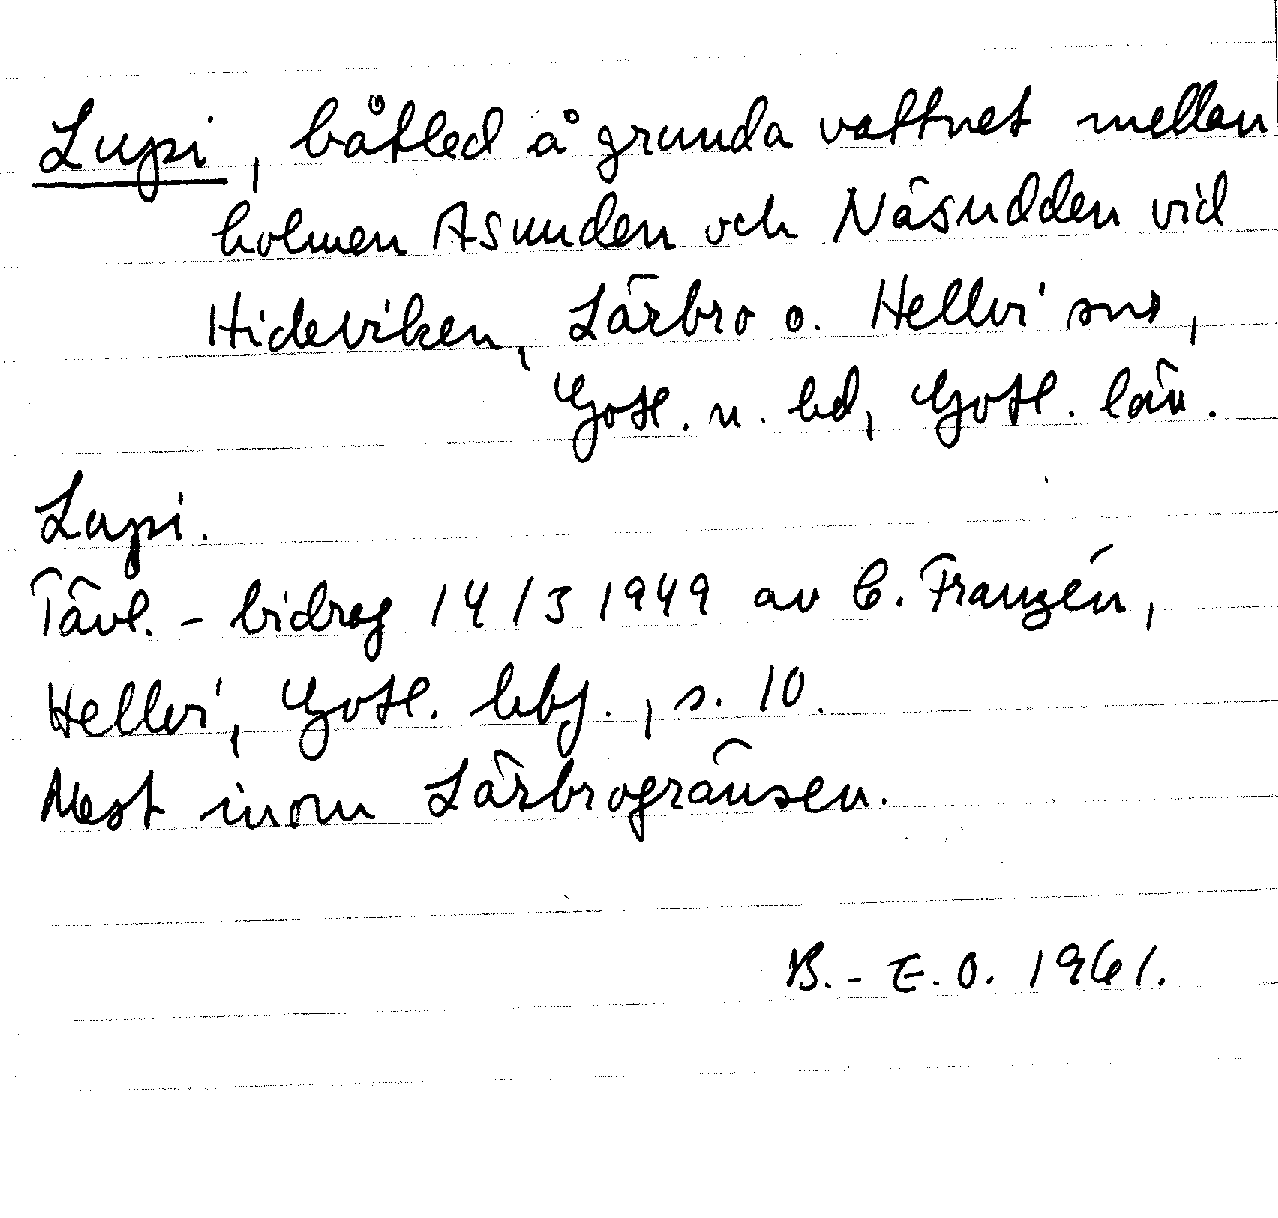 Lupi, båtled å grunda vattnet mellan
holmen Asunden och Näsudden vid
Hideviken, Lärbro o. Hellvi snr,
Gotl. n. hd, Gotl. län.
Lupi.
Tävl. - bidrag 14/3 1949 av C. Franzén,
Hellvi, Gotl. hbf., s. 10.
Mest inom Lärbrogränsen.
B.-E.O. 1961.